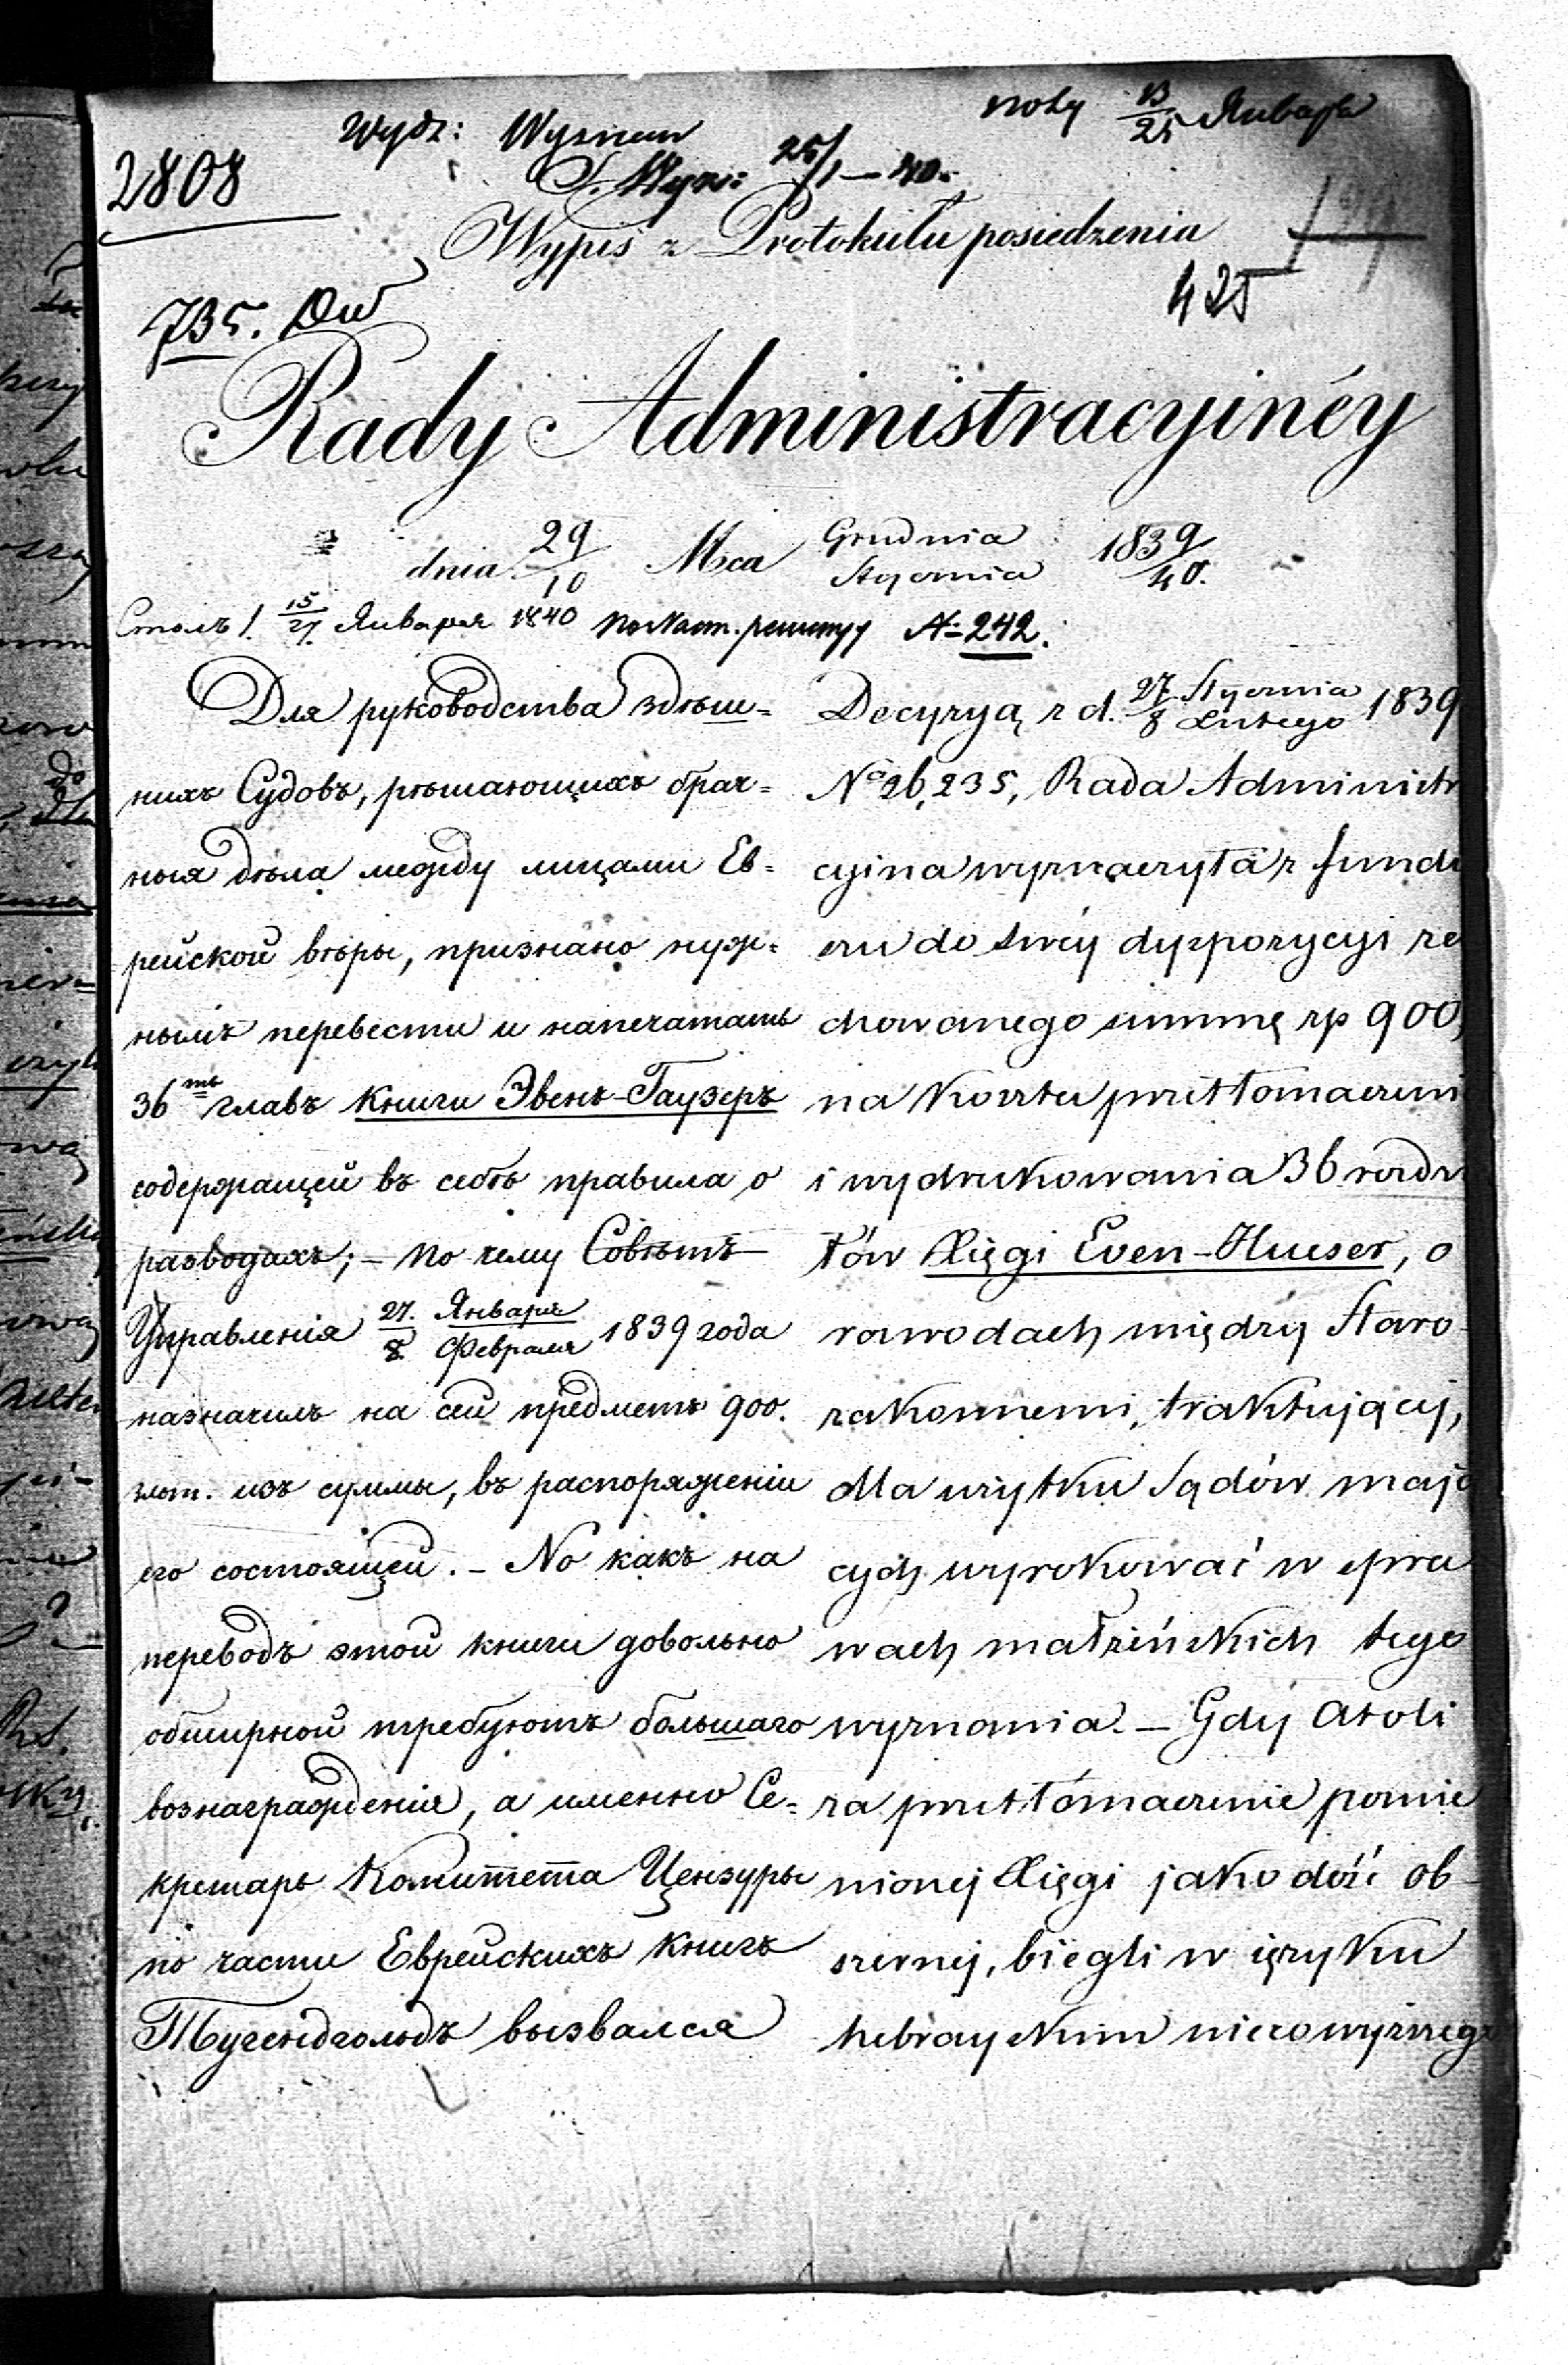 Wydz: Wyznan
ноты 13/25 Января
2808
S. Wyzn: 25/1 – 40.
Wypis z Protokułu posiedzenia
425
735. Dw
Rady Administracyinéy
dnia 29/10 Mca Grudnia/Stycznia 1839/40.
Столъ 1. 15/27 Января 1840 по Наст. реестру № 242.
Для руководства здѣш=
нихъ Судовъ, рѣшающихъ брач=
ныя дѣла между лицами Ев=
рейской вѣры, признано нуж=
нымъ перевести и напечатать
36ть главъ книги Эвенъ-Гаузеръ
содержащей въ себѣ правила о
разводахъ; – По чему Совѣтъ
Управленія 27. Января/8. Февраля 1839 года
назначилъ на сей предметъ 900.
злот. изъ суммы, въ распоряженіи
его состоящей. – Но какъ на
переводъ этой книги довольно
обширной требуютъ большаго
вознагражденія, а именно Се=
кретарь Комитета Цензуры
по части Еврейскихъ книгъ
Тугендгольдъ вызвался
Decyzyą z d. 27 Stycznia/8 Lutego 1839
No 26,235, Rada Administr
cyina wyznaczyła z fundu
szu do swéy dyzpozycyi ze
chowanego summę zp 900,
na koszta przetłomaczeni
i wydrukowania 36 rozdzi
łów Xięgi Even-Hueser, o
rozwodach między Staro
zakonnemi, traktującej,
dla użytku Sądów mają
cych wyrokować w spra
wach małżeńskich tego
wyznania. – Gdy atoli
za przetłómaczenie pomie
nionej Xięgi jako dość ob-
szernej, biegli w ięzyku
hebrayskim niezowyższeg